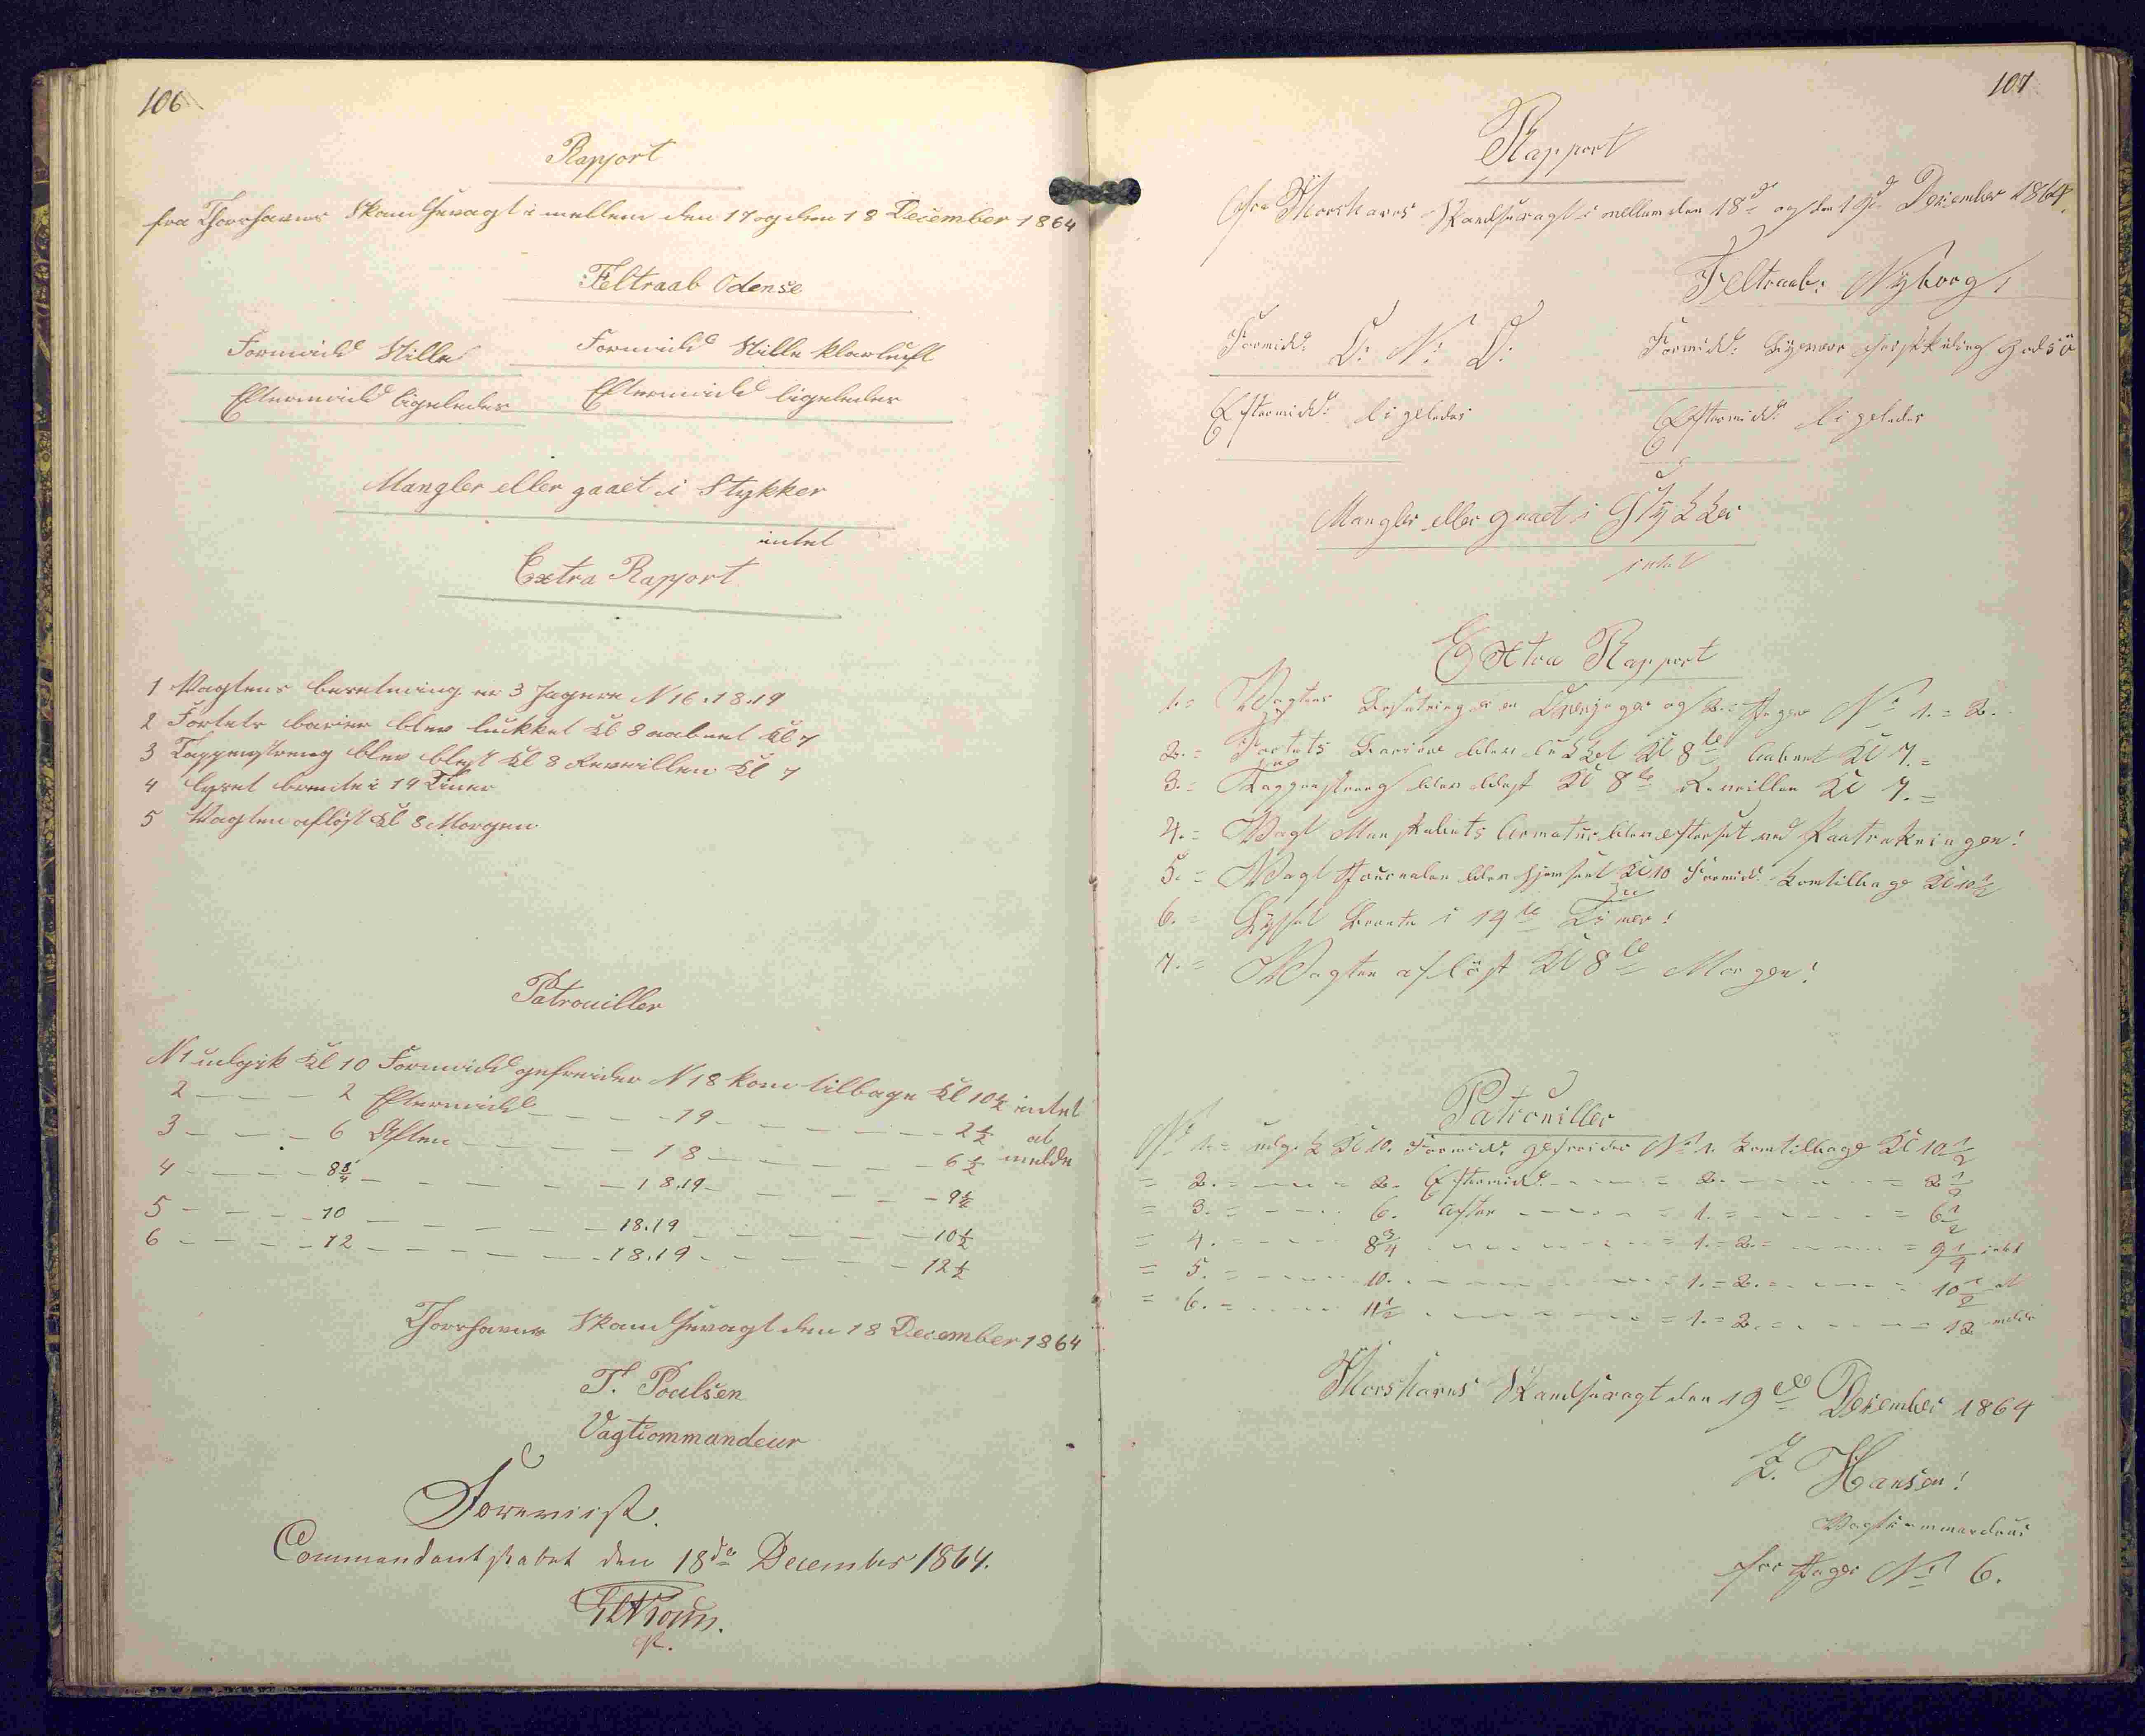 106
Rapport
fra Thorshavns Skandsevagt i mellem den 17 og den 18 December 1864
Feltraab Odense
Formidd Stille Formidd Stille klarluft
Eftermidd ligeledes Eftermidd ligeledes
Mangler eller gaaet i Stykker
intet
Extra Rapport
1 Vagtens besetning er 3 Jægere N 16.18.19
2 Fortets barier blev lukket Kl 8 aabnet Kl 7
3 Tappenstreng blev blæst Kl 8 Reveillen Kl 7
4 lyset brente i 14 Timer
5 Vagten afløst Kl 8 Morgen
Patrouiller
N 1 udgik Kl 10 Formidd gefreider N 18 kom tilbage Kl 10½ intet
2 — — — 2 Eftermidd — — — 19 — — — — — 2½ at
3 — — — 6 Aften — — — — 18 — — — — — 6½ melde
4 — — — — 8¾ — — — — — 18.19 — — — — 9½
5 — — — — 10 — — — — — 18.19 — — — — — 10½
6 — — — — 12 — — — — — 18.19 — — — — 12½
Thorshavns Skandsevagt den 18 December 1864
T. Poulsen
Vagtcommandeur
Foreviist.
Commandantskabet den 18de December 1864.
107
Rapport
fra Thorshavns Skandsevagt i mellem den 18de og den 19de December 1864.
Feltraab: Nyborg!
Formidd: O: N: O: Formidd: Byevær frisk Kuling
Eftermidd: ligeledes Eftermidd: ligeledes
Mangler eller gaaet i Stykker
intet
Extra Rapport
1. = Vagtens Besætning er en Overjæger og 2. Jæger No 1. = 2.
2. = Fortets Barriere blev lukket Kl 8te Aabnet Kl 7. =
3. = Tappenstreng blev blæst Kl 8te Reveillen Kl 7. =
4. = Vagt Manskabets Armatur blev efterset ved Paatrækningen!
5. = Vagt Journalen blev hjemsent Kl 10 Formidd: kom tilbage Kl 10½
6. = Lysset Brente i 14te Timer!
7. = Vagten afløst Kl 8te Morgen!
Patrouiller
No 1. = udgik Kl 10. Formidd: gefreider No 1. kom tilbage Kl 10½
= 2. = — — = 2. Eftermidd: — — — = 2. — — — = 2½
= 3. = — — 6. Aften — — — = 1. = — — — = 6½
= 4. = — — 8¾ — — — — = 1. = 2. = — — — = 9¼ intet
= 5. = — — 10. — — — — 1. = 2. = — — — = 10½ at
= 6. = — — 11½ — — — — = 1. = 2. = — — — = 12 melde
Thorshavns Skandsevagt den 19de December 1864
Z. Hansen!
Vagtkommandeur
for Jæger No 6.